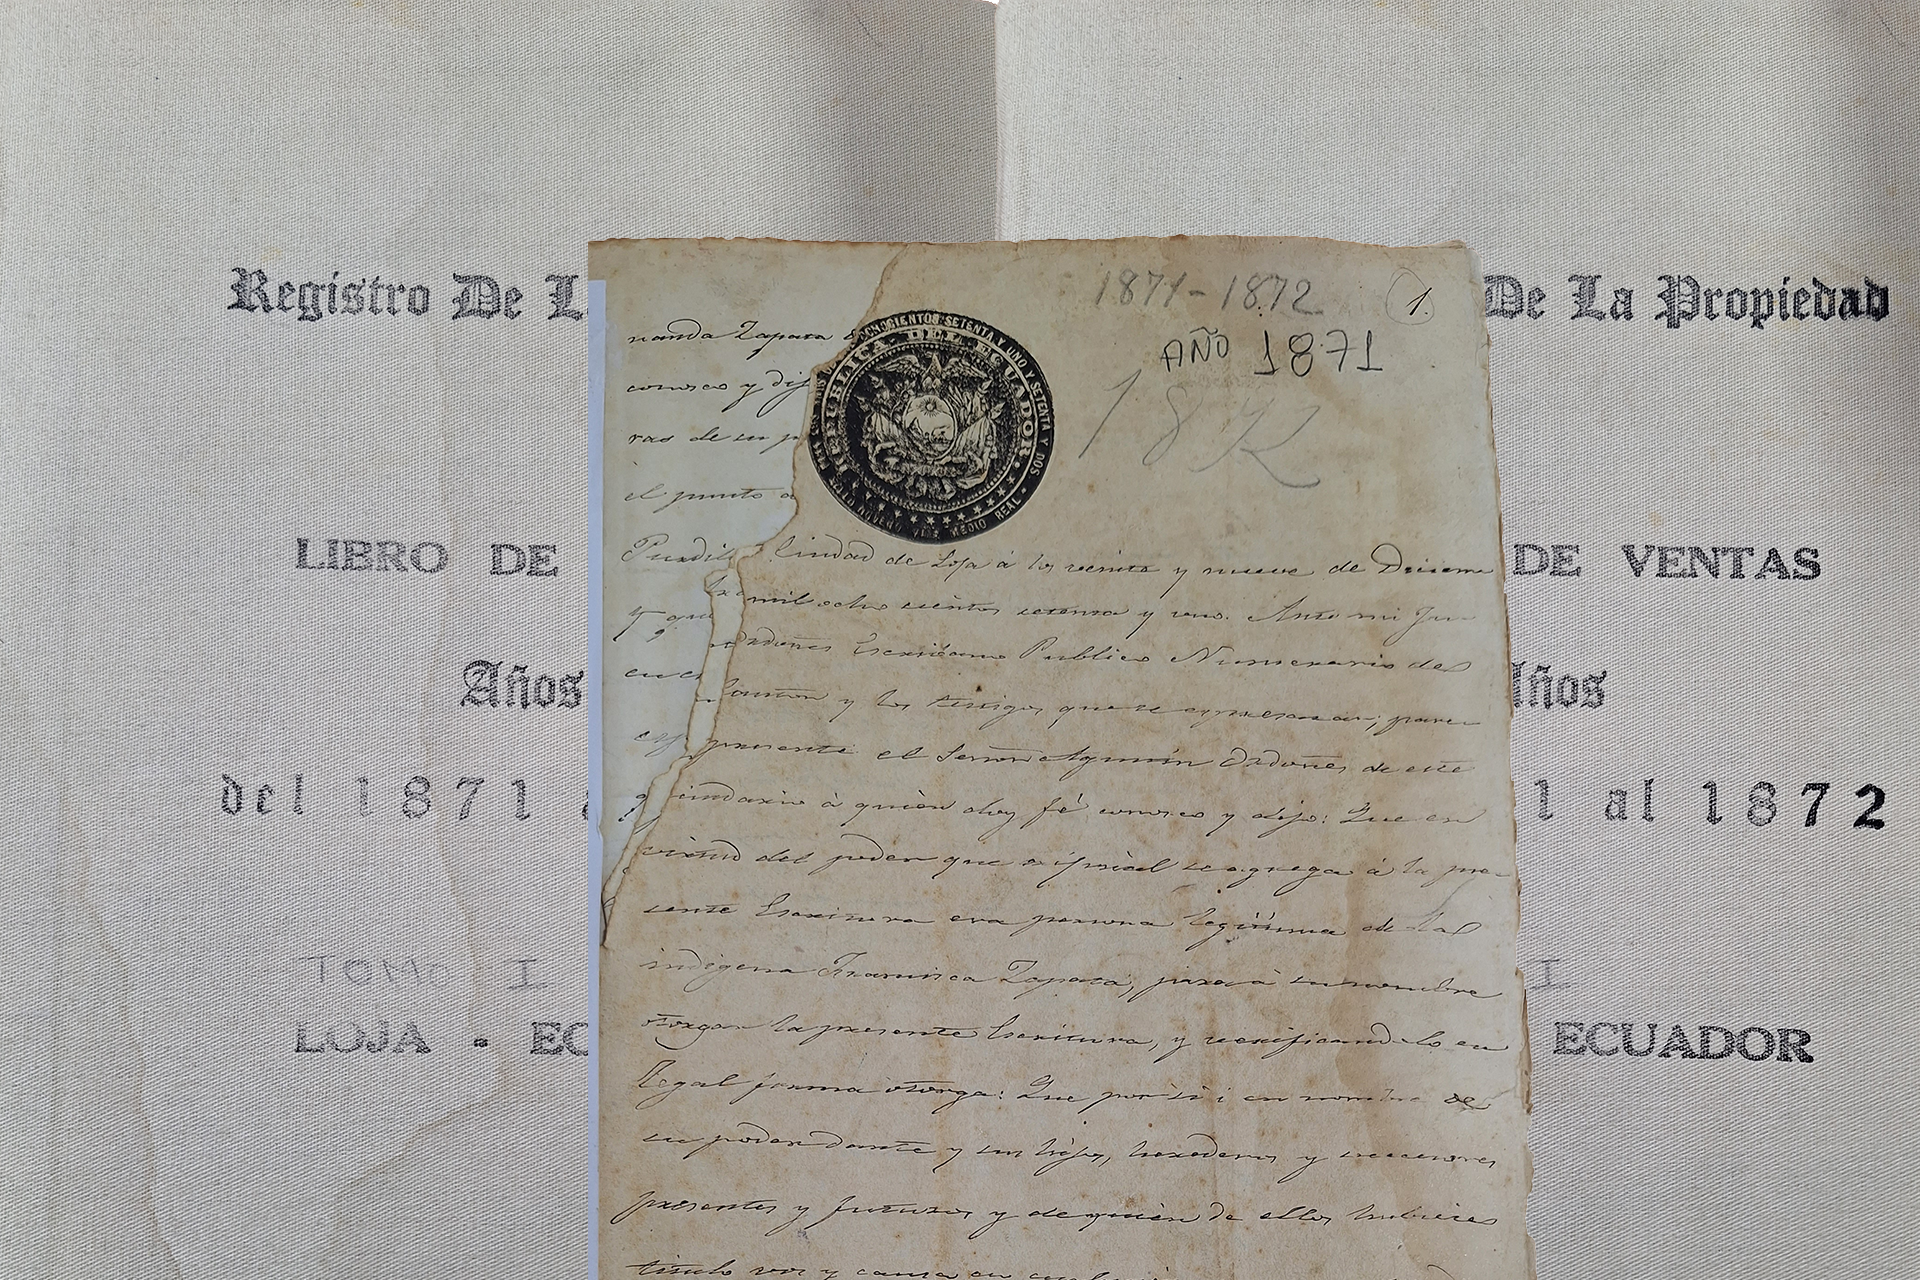 Registro De L
LIBRO DE
Años
del 1871
TOMO I
LOJA - EC
De La Propiedad
DE VENTAS
ños
1 al 1872
I
ECUADOR
1871-1872
1.
AÑO 1871
18
OCHOCIENTOS SETENTA Y UNO Y SETENTA Y DOS
REPUBLICA DEL ECUADOR
SELLO NOVENO VALE MEDIO REAL
nanda Zapata
conosco y dij
ras de su p
el punto a
Ciudad de Loja á los veinte y nueve de Diciem
mil ocho cientos setenta y uno. Ante mi Ju
Escribano Publico Numerario de
y los testigos que se expresaran, pare
presente el Señor Agustín Ordoñes de este
cindario á quien doy fé conosco y dijo: Que en
virtud del poder que original se agrega á la pre
sente Escritura era persona legitima de la
indigena Francisca Zapata, para á su nombre
otorgar la presente Escritura, y verificandolo en
legal forma otorga: Que por sí i en nombre de
su poderdante y sus hijos, herederos y sucesores
presentes y futuros y de quien de ellos hubiere
titulo vos y causa en